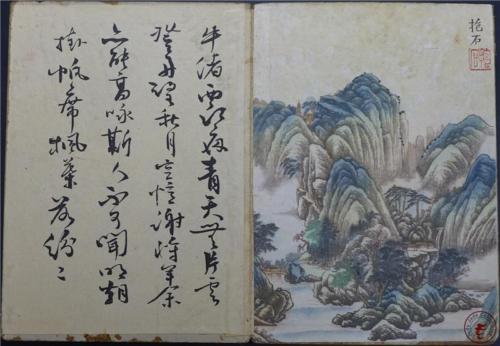 牛渚西江夜青天無片雲
登舟望秋月空憶謝將軍余
亦能高咏斯人不可聞明朝
挂帆席楓葉落紛〻
抱石